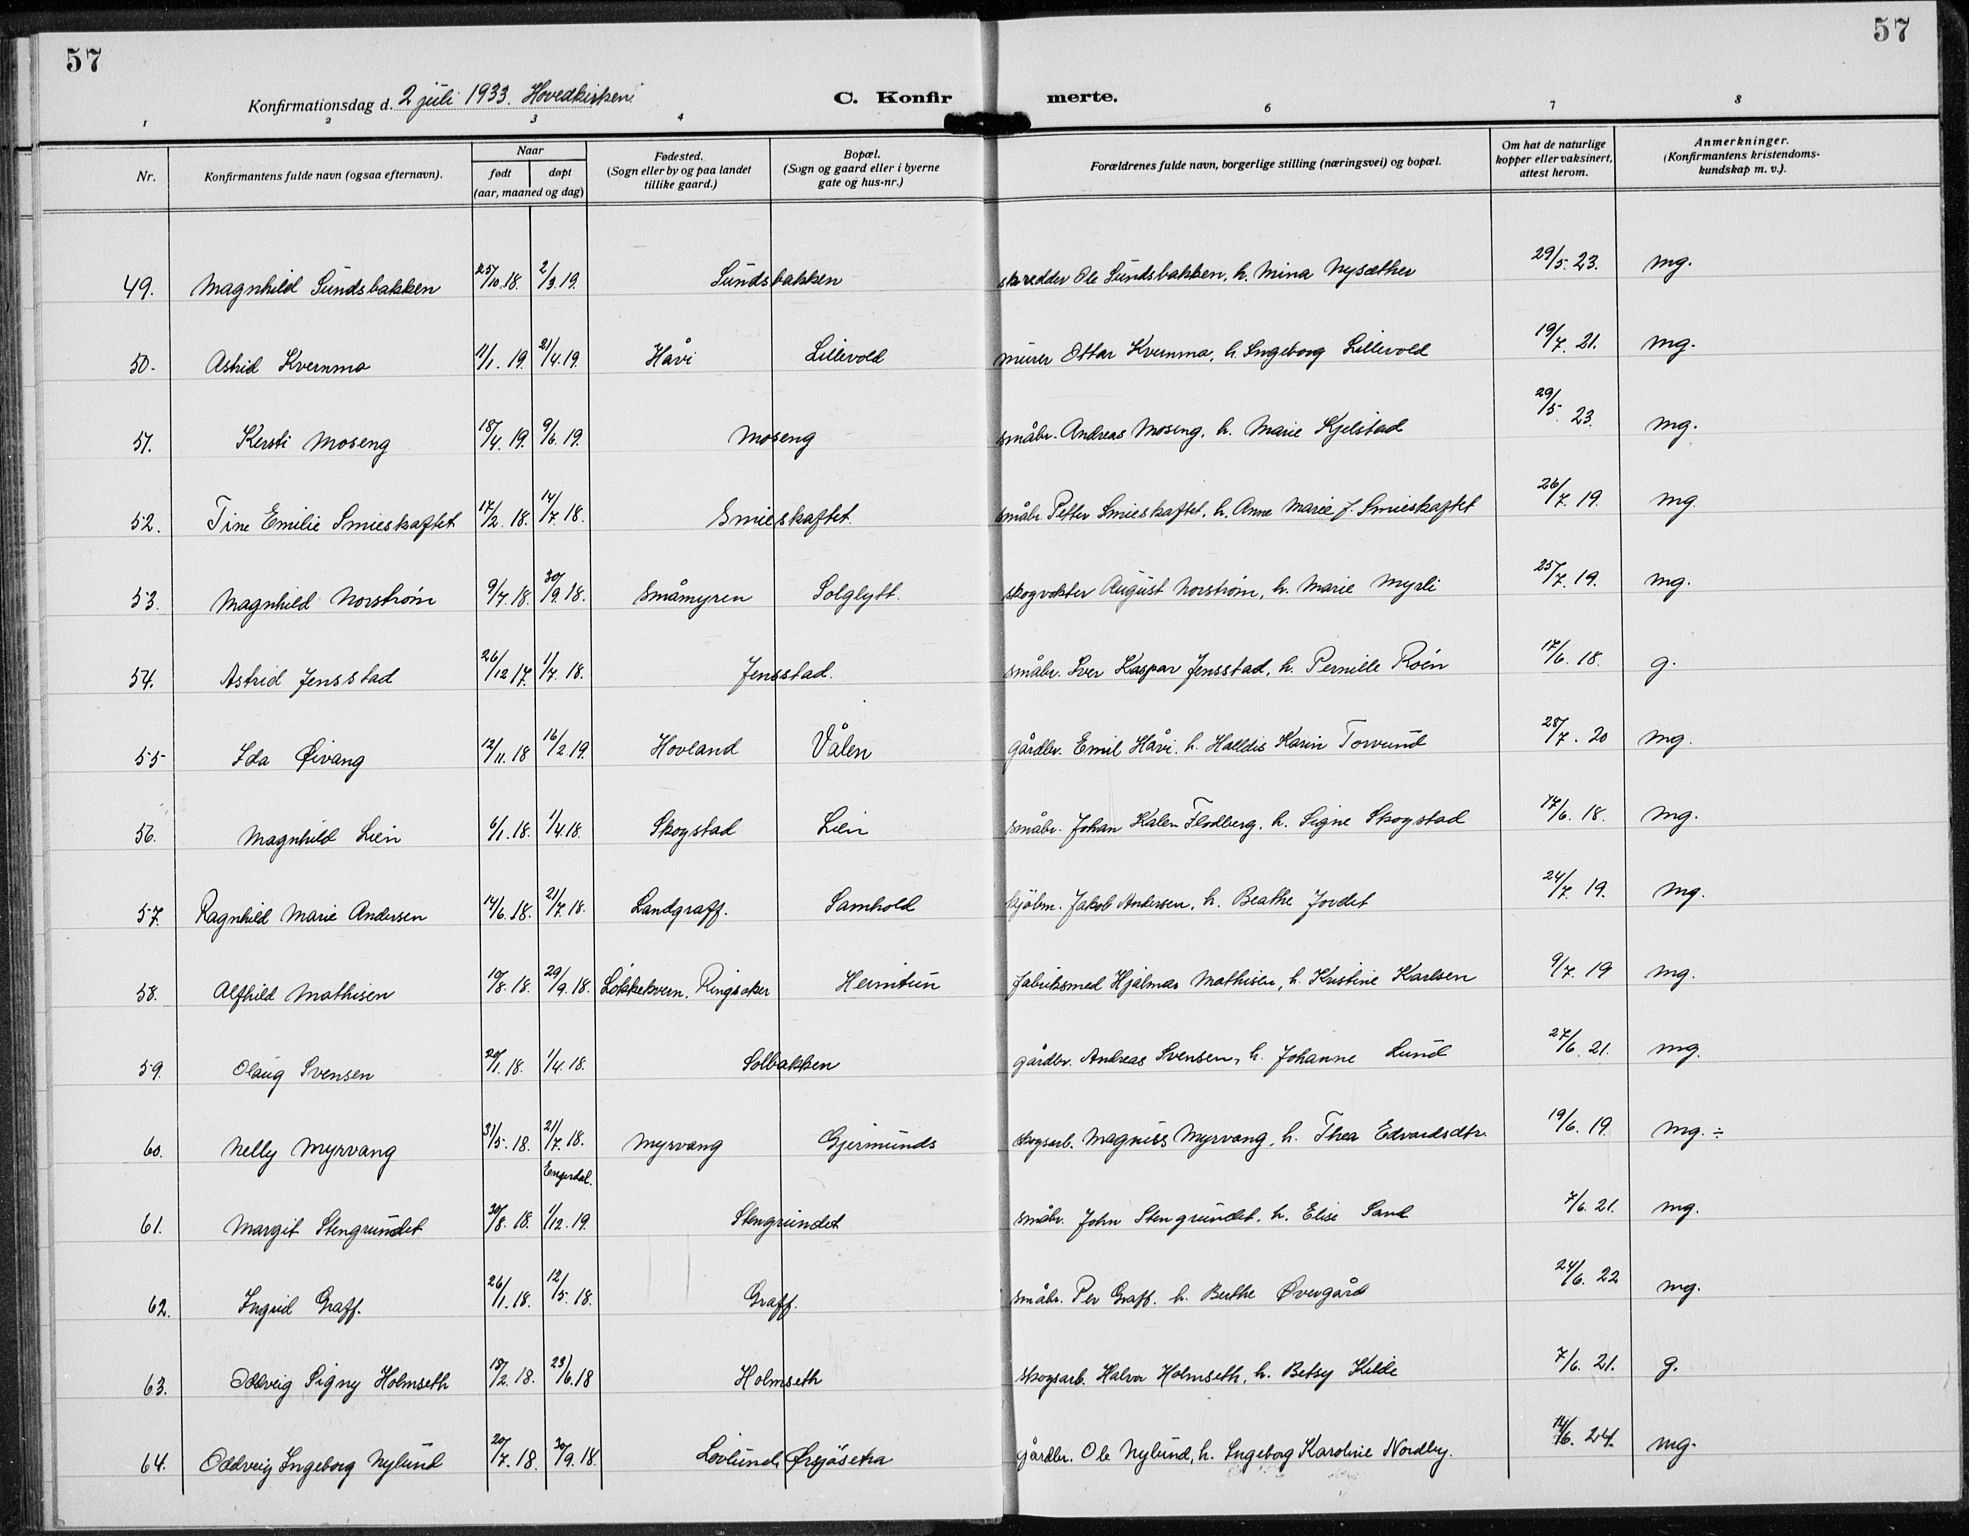 57
57
Konfirmationsdag d. 2 juli 1933. Hovedkirken.
C. Konfir merte.
1 2 3 4 6 7 8
Nr. Konfirmantens fulde navn (ogsaa efternavn). Naar født døpt (aar, maaned og dag) Fødested. (Sogn eller by og paa landet tillike gaard.) Bopæl. (Sogn og gaard eller i byerne gate og hus-nr.) Forældrenes fulde navn, borgerlige stilling (næringsvei) og bopæl. Om hat de naturlige kopper eller vaksinert, attest herom. Anmerkninger. (Konfirmantens kristendoms-kundskap m. v.).
49. Magnhild Sundsbakken 25/10.18. 2/3.19. Sundsbakken skredder Ole Sundsbakken, h. Mina Nysæther 29/5.23. mg.
50. Astrid Kvernmo 11/1.19. 21/4.19. Håvi Lillevold murer Ottar Kvernmo, h. Ingeborg Lillevold 19/7.21. mg.
51. Kersti Moseng 18/4.19. 9/6.19. Moseng småbr. Andreas Moseng, h. Marie Kjelstad 29/5.23. mg.
52. Tine Emilie Smieskaftet 17/2.18. 14/7.18. Smieskaftet småbr. Petter Smieskaftet, h. Anne Marie f. Smieskaftet 26/7.19. mg.
53. Magnhild Norstrøm 9/7.18. 30/9.18. Småmyren Solglytt. skogvokter August Norstrøm, h. Marie Myrli 25/7.19. mg.
54. Astrid Jensstad 26/12.17. 1/7.18. Jensstad. småbr. Iver Kaspar Jensstad, h. Pernille Roén 17/6.18. g.
55 Ida Øivang 12/11.18 16/2.19. Hovland Vålen gårdbr. Emil Håvi. h. Halldis Karin Torvund 28/7.20 mg.
56. Magnhild Lien 6/1.18. 1/4.18. Skogstad Lien småbr. Johan Kalen Flodberg, h. Signe Skogstad 17/6.18. mg.
57. Ragnhild Marie Andersen 14/6.18. 21/7.18. Landgraff. Samhold kjøbm. Jakob Andersen, h. Beathe Jordet 24/7.19. mg.
58. Alfhild Mathisen 10/8.18. 29/9.18. Løkkekvern, Ringsaker Heimtun fabriksmed Hjalmar Mathisen, h. Kristine Karlsen 9/7.19 mg.
59. Olaug Svensen 20/1.18. 1/4.18. Solbakken gårdbr. Andreas Svensen, h. Johanne Lund 27/6.21. mg.
60. Nelly Myrvang 31/5.18. 21/7.18. Engerdal. Myrvang Gjermunds skogsarb. Magnus Myrvang, h. Thea Edvardsdtr. 19/6.19. mg. ÷
61. Margit Stengrundet 30/8.18. 1/12.19. Stengrundet småbr. John Stengrundet, h. Elise Sand 7/6.21. mg.
62. Ingrid Graff. 26/1.18. 12/5.18. Graff. småbr. Per Graff. h. Berthe Øvergård 24/6.22 mg.
63. Oddveig Signy Holmseth 18/2.18. 23/6.18 Holmseth skogsarb. Halvor Holmseth, h. Betsy Kilde 7/6.21. g.
64. Oddveig Ingeborg Nylund 20/7.18. 30/9.18. Lovlund, Ørsjøsetra gårdbr. Ole Nylund, h. Ingeborg Karoline Nordby. 14/6.24. mg.